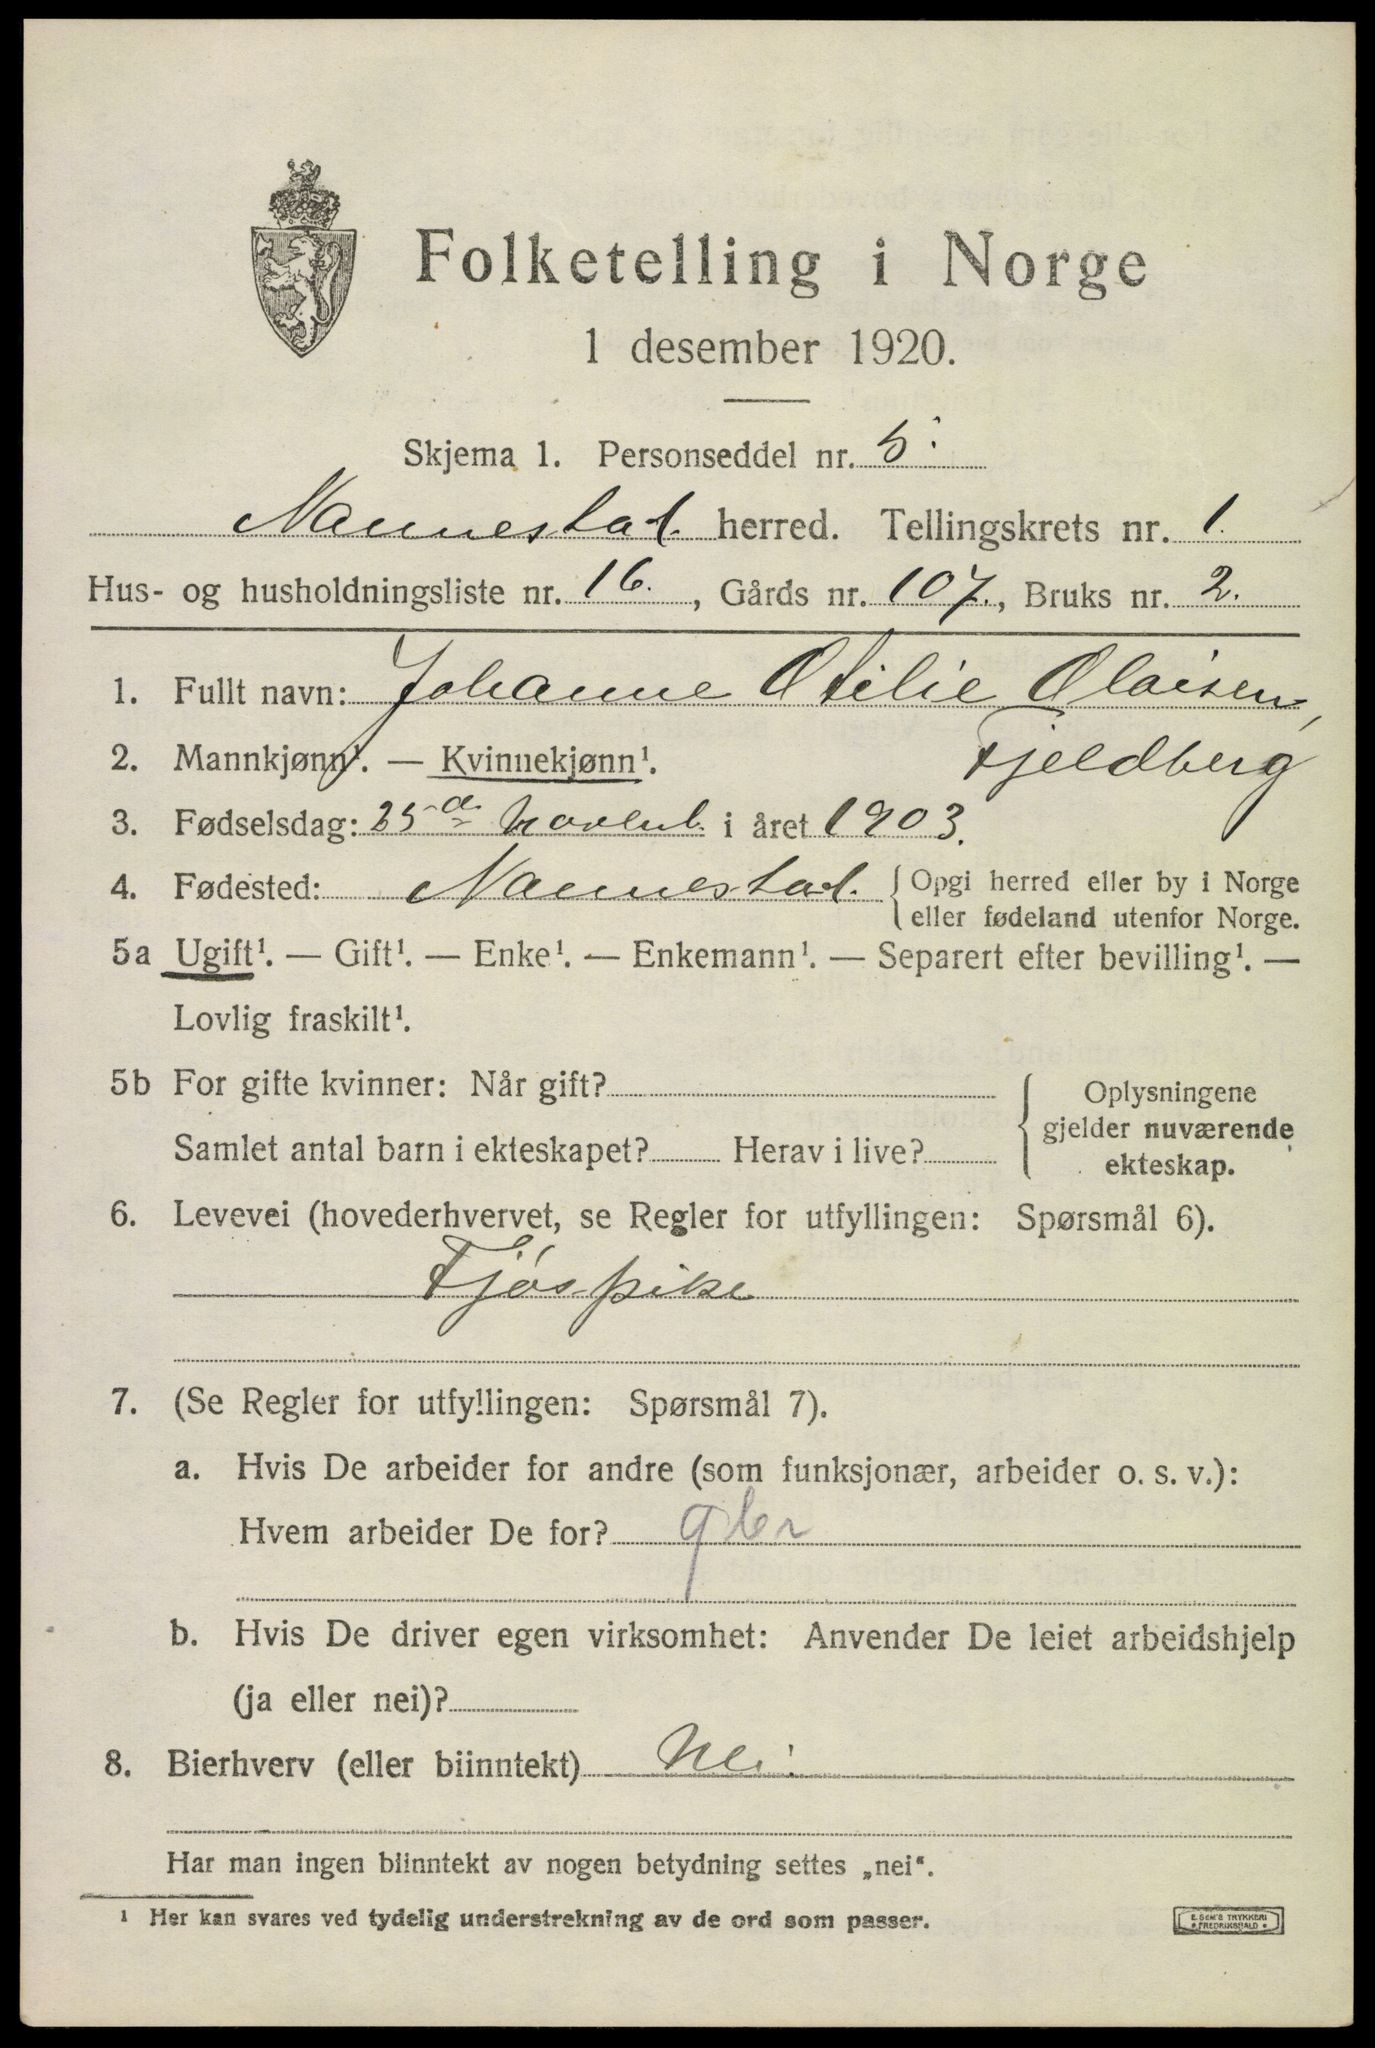 Folketelling i Norge
1 desember 1920.
Skjema 1. Personseddel nr. 5.
Nannestad herred. Tellingskrets nr. 1.
Hus- og husholdningsliste nr. 16., Gårds nr. 107., Bruks nr. 2.
1. Fullt navn: Johanne Otilie Olaisen,
2. Mannkjønn¹. — Kvinnekjønn¹. Fjeldberg
3. Fødselsdag: 25de Novemb. i året 1903.
4. Fødested: Nannestad. { Opgi herred eller by i Norge
eller fødeland utenfor Norge.
5a Ugift¹. — Gift¹. — Enke¹. — Enkemann¹. — Separert efter bevilling¹. —
Lovlig fraskilt¹.
5b For gifte kvinner: Når gift? { Oplysningene
gjelder nuværende
Samlet antal barn i ekteskapet? Herav i live?
ekteskap.
6. Levevei (hovederhvervet, se Regler for utfyllingen: Spørsmål 6).
Fjøspike
7. (Se Regler for utfyllingen: Spørsmål 7).
a. Hvis De arbeider for andre (som funksjonær, arbeider o. s. v.):
Hvem arbeider De for?
b. Hvis De driver egen virksomhet: Anvender De leiet arbeidshjelp
(ja eller nei)?
8. Bierhverv (eller biinntekt) Nei
Har man ingen biinntekt av nogen betydning settes „nei“.
¹ Her kan svares ved tydelig understrekning av de ord som passer.
E. SEM'S TRYKKERI
FREDRIKSHALD